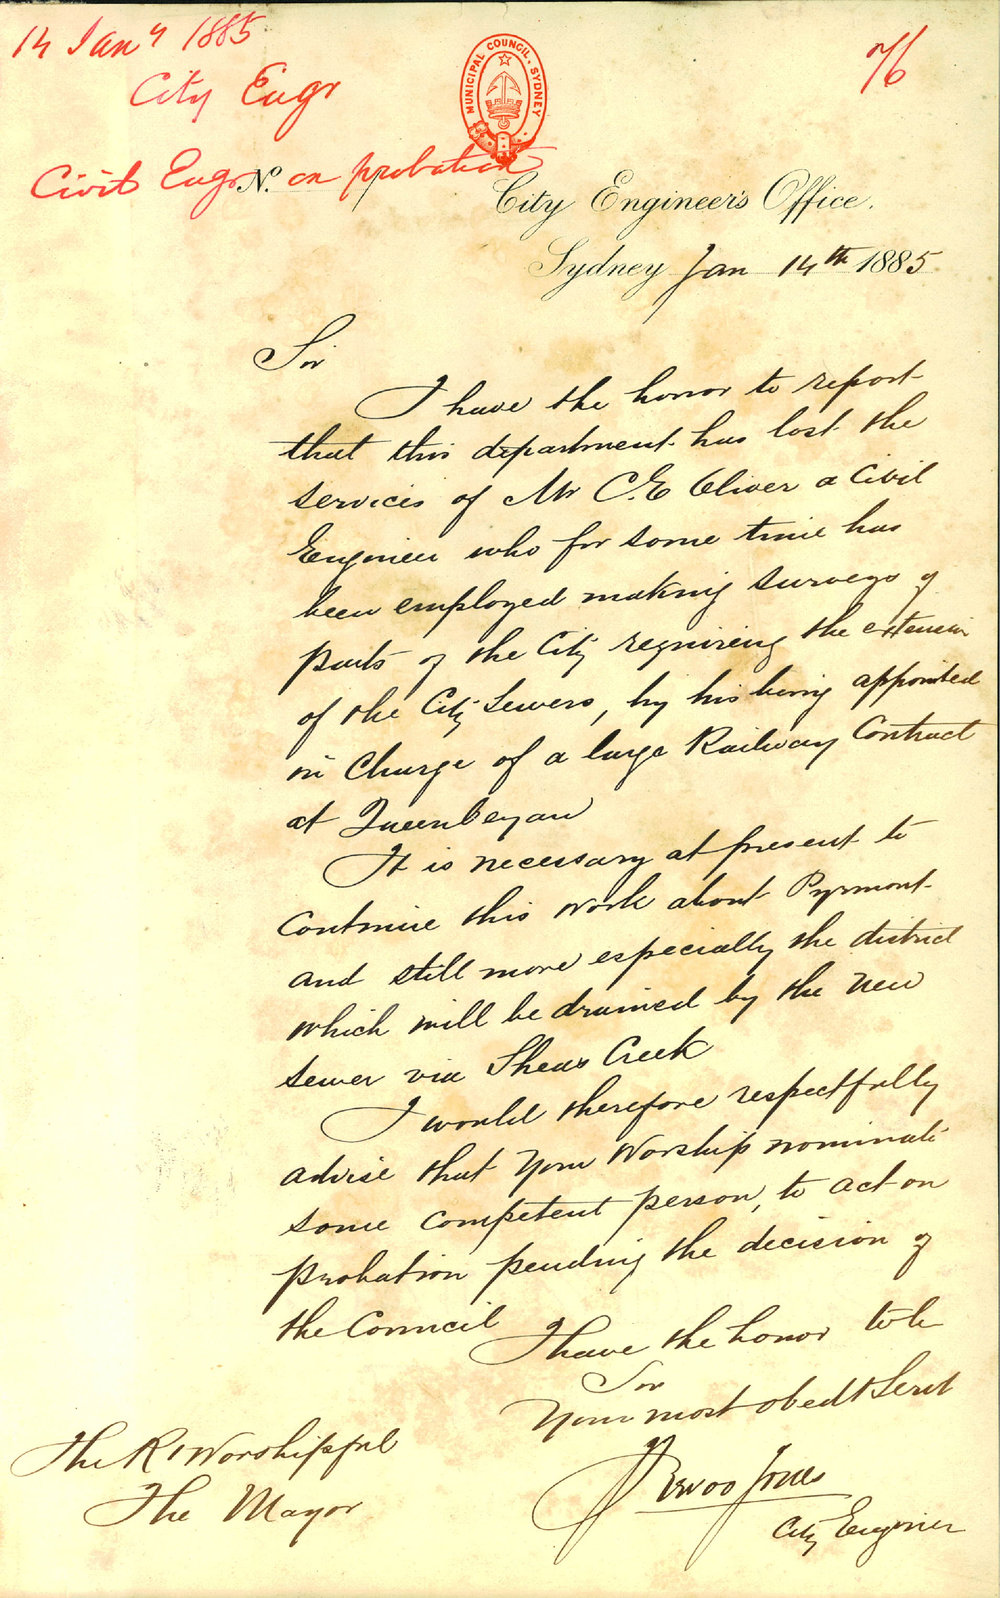 14 Jany 1885
76
City Engr
Civil Engr on probation
MUNICIPAL COUNCIL. SYDNEY
No.
City Engineer's Office.
Sydney Jan 14th 1885
Sir
I have the honor to report
that this department has lost the
services of Mr C.E Oliver a Civil
Engineer who for some time has
been employed making surveys of
parts of the City requiring the extension
of the City Sewers, by his being appointed
in Charge of a large Railway Contract
at Queenbeyan
It is necessary at present to
continue this work about Pyrmont
and still more especially the district
which will be drained by the new
sewer via Sheas Creek
I would therefore respectfully
advise that Your Worship nominate
some competent person, to act on
probation pending the decision of
the Council
I have the honor to be
Sir
Your most obedt Servt
Jones
City Engineer
The Rt Worshipful
The Mayor